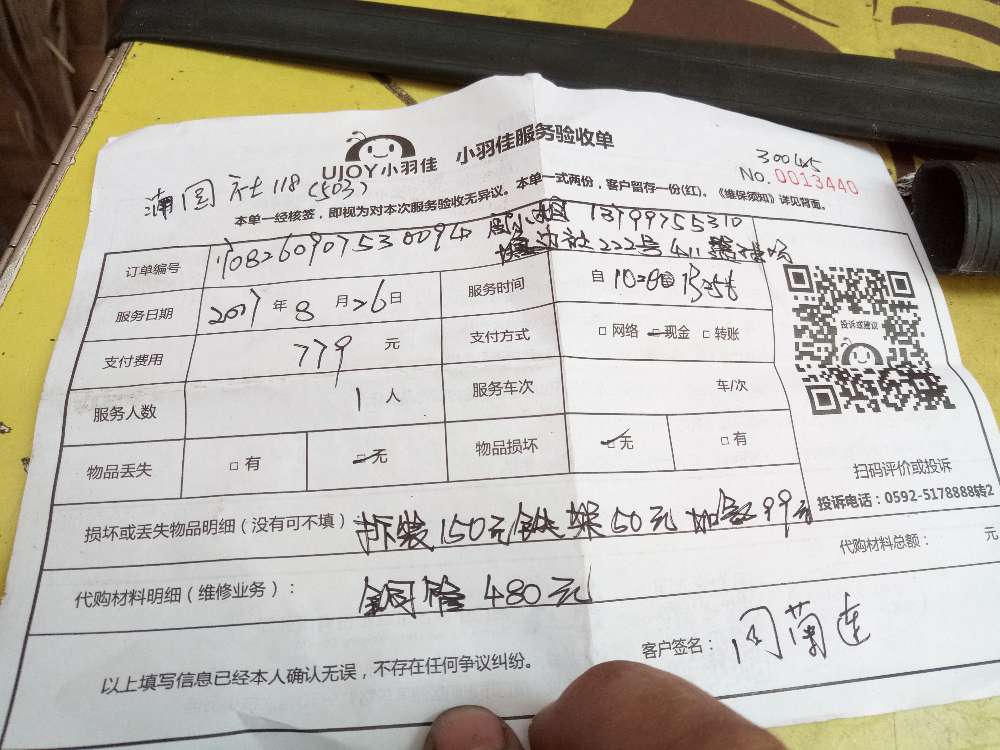 UJOY小羽佳 小羽佳服务验收单
300445
No.0013440
浦园社118(503)
本单一经核签，即视为对本次服务验收无异议。本单一式两份，客户留存一份(红)。《维保须知》详见背面。
订单编号 13799755310
社222号411
服务日期 2017年8月26日 服务时间 自
支付费用 779元 支付方式 □网络 □现金 □转账
服务人数 1人 服务车次 车/次
物品丢失 □有 □无 物品损坏 □无 □有
投诉或建议
扫码评价或投诉
投诉电话：0592-5178888转2
损坏或丢失物品明细（没有可不填） 拆装150元铁架50元加氨99元
代购材料总额： 元
代购材料明细（维修业务）： 铜管480元
客户签名：
以上填写信息已经本人确认无误，不存在任何争议纠纷。